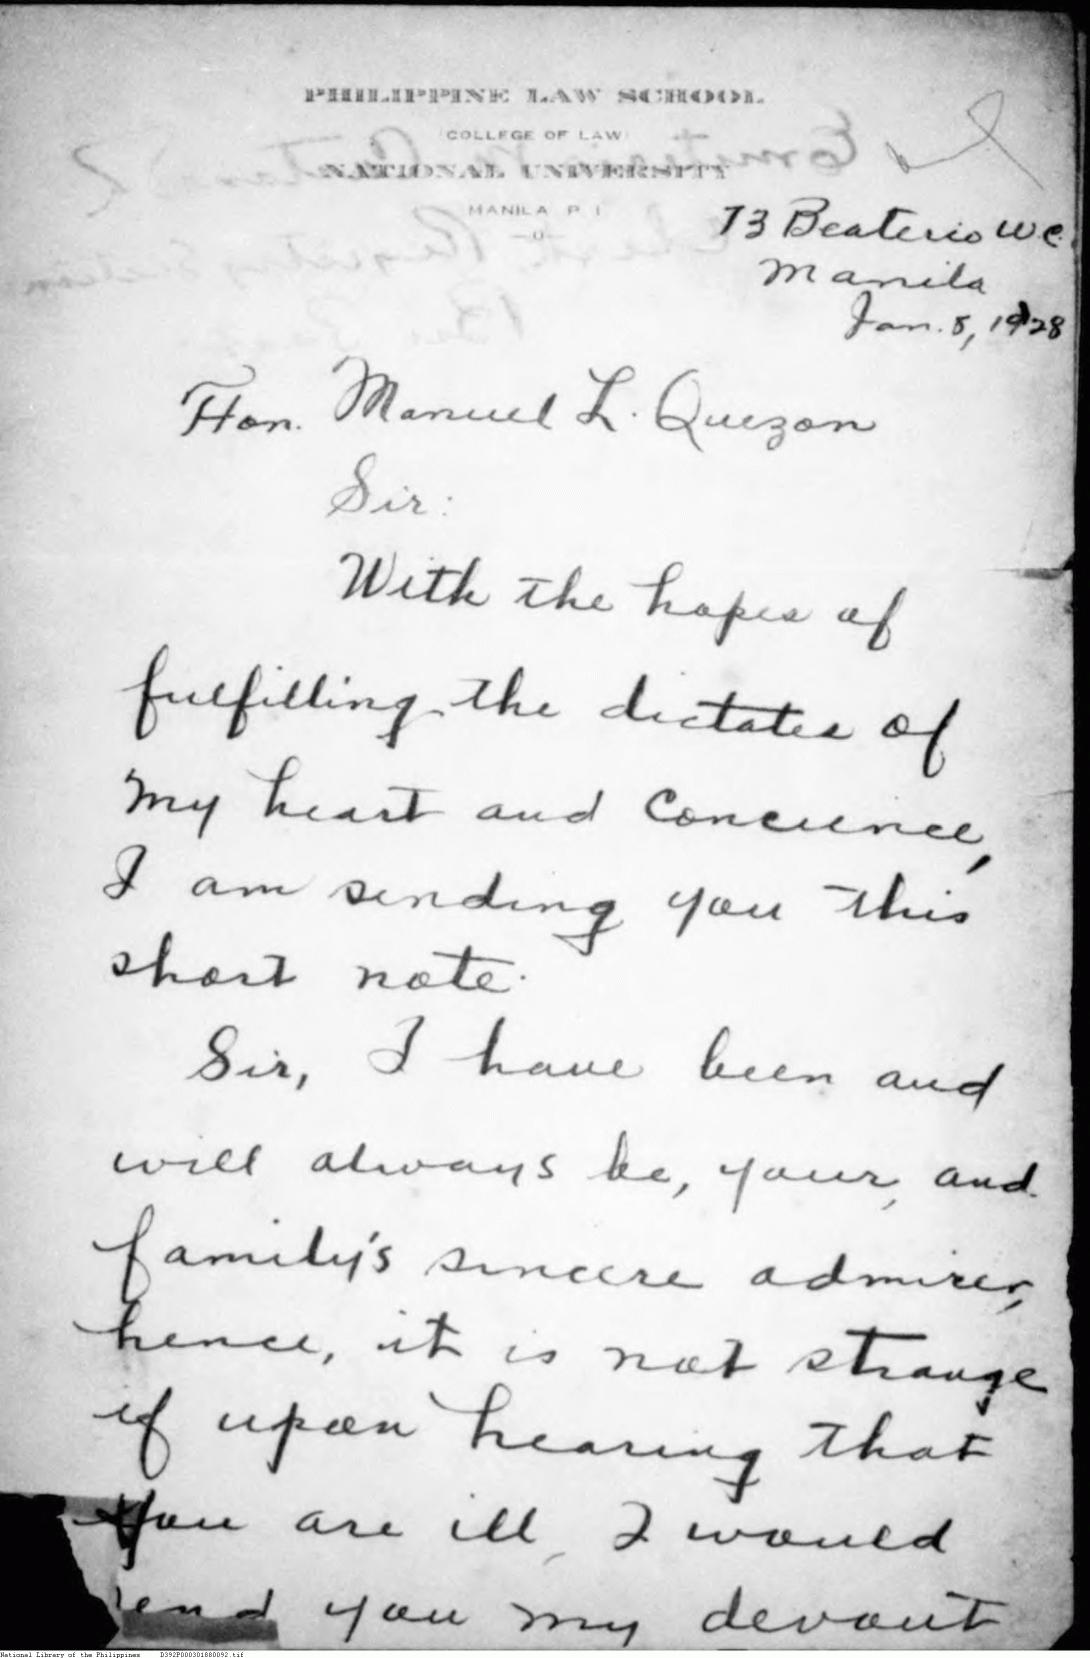 PHILIPPINE LAW SCHOOL
(COLLEGE OF LAW)
NATIONAL UNIVERSITY
MANILA P I
73 Beaterio W C.
Manila
Jan. 8, 1928
Hon. Manuel L. Quezon
Sir:
With the hopes of
fulfilling the dictates of
my heart and concience,
I am sending you this
short note.
Sir, I have been and
will always be, your, and
family's sincere admirer,
hence, it is not strange
if upon hearing that
you are ill, I would
send you my devout
National Library of the Philippines D392P000301880092.tif